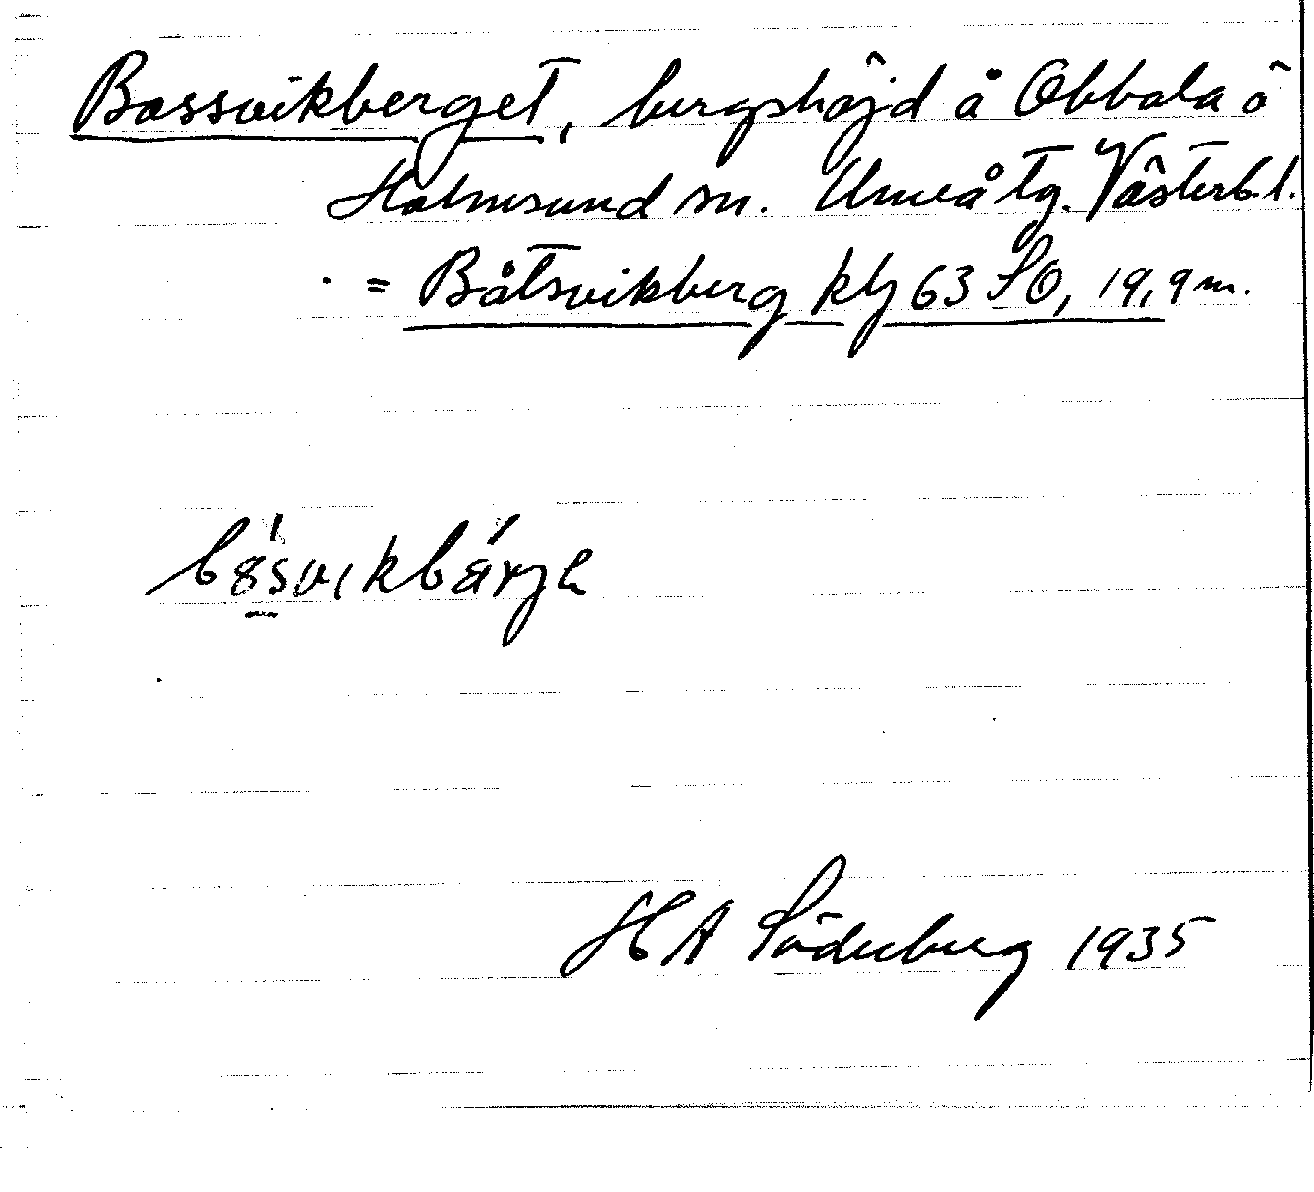 Bassvikberget, bergshöjd å Obbola ö
Holmsund sn. Umeå tg. Västerb.l.
= Båtsvikberg kbl 63 SO, 19,9 m.
HA Söderberg 1935